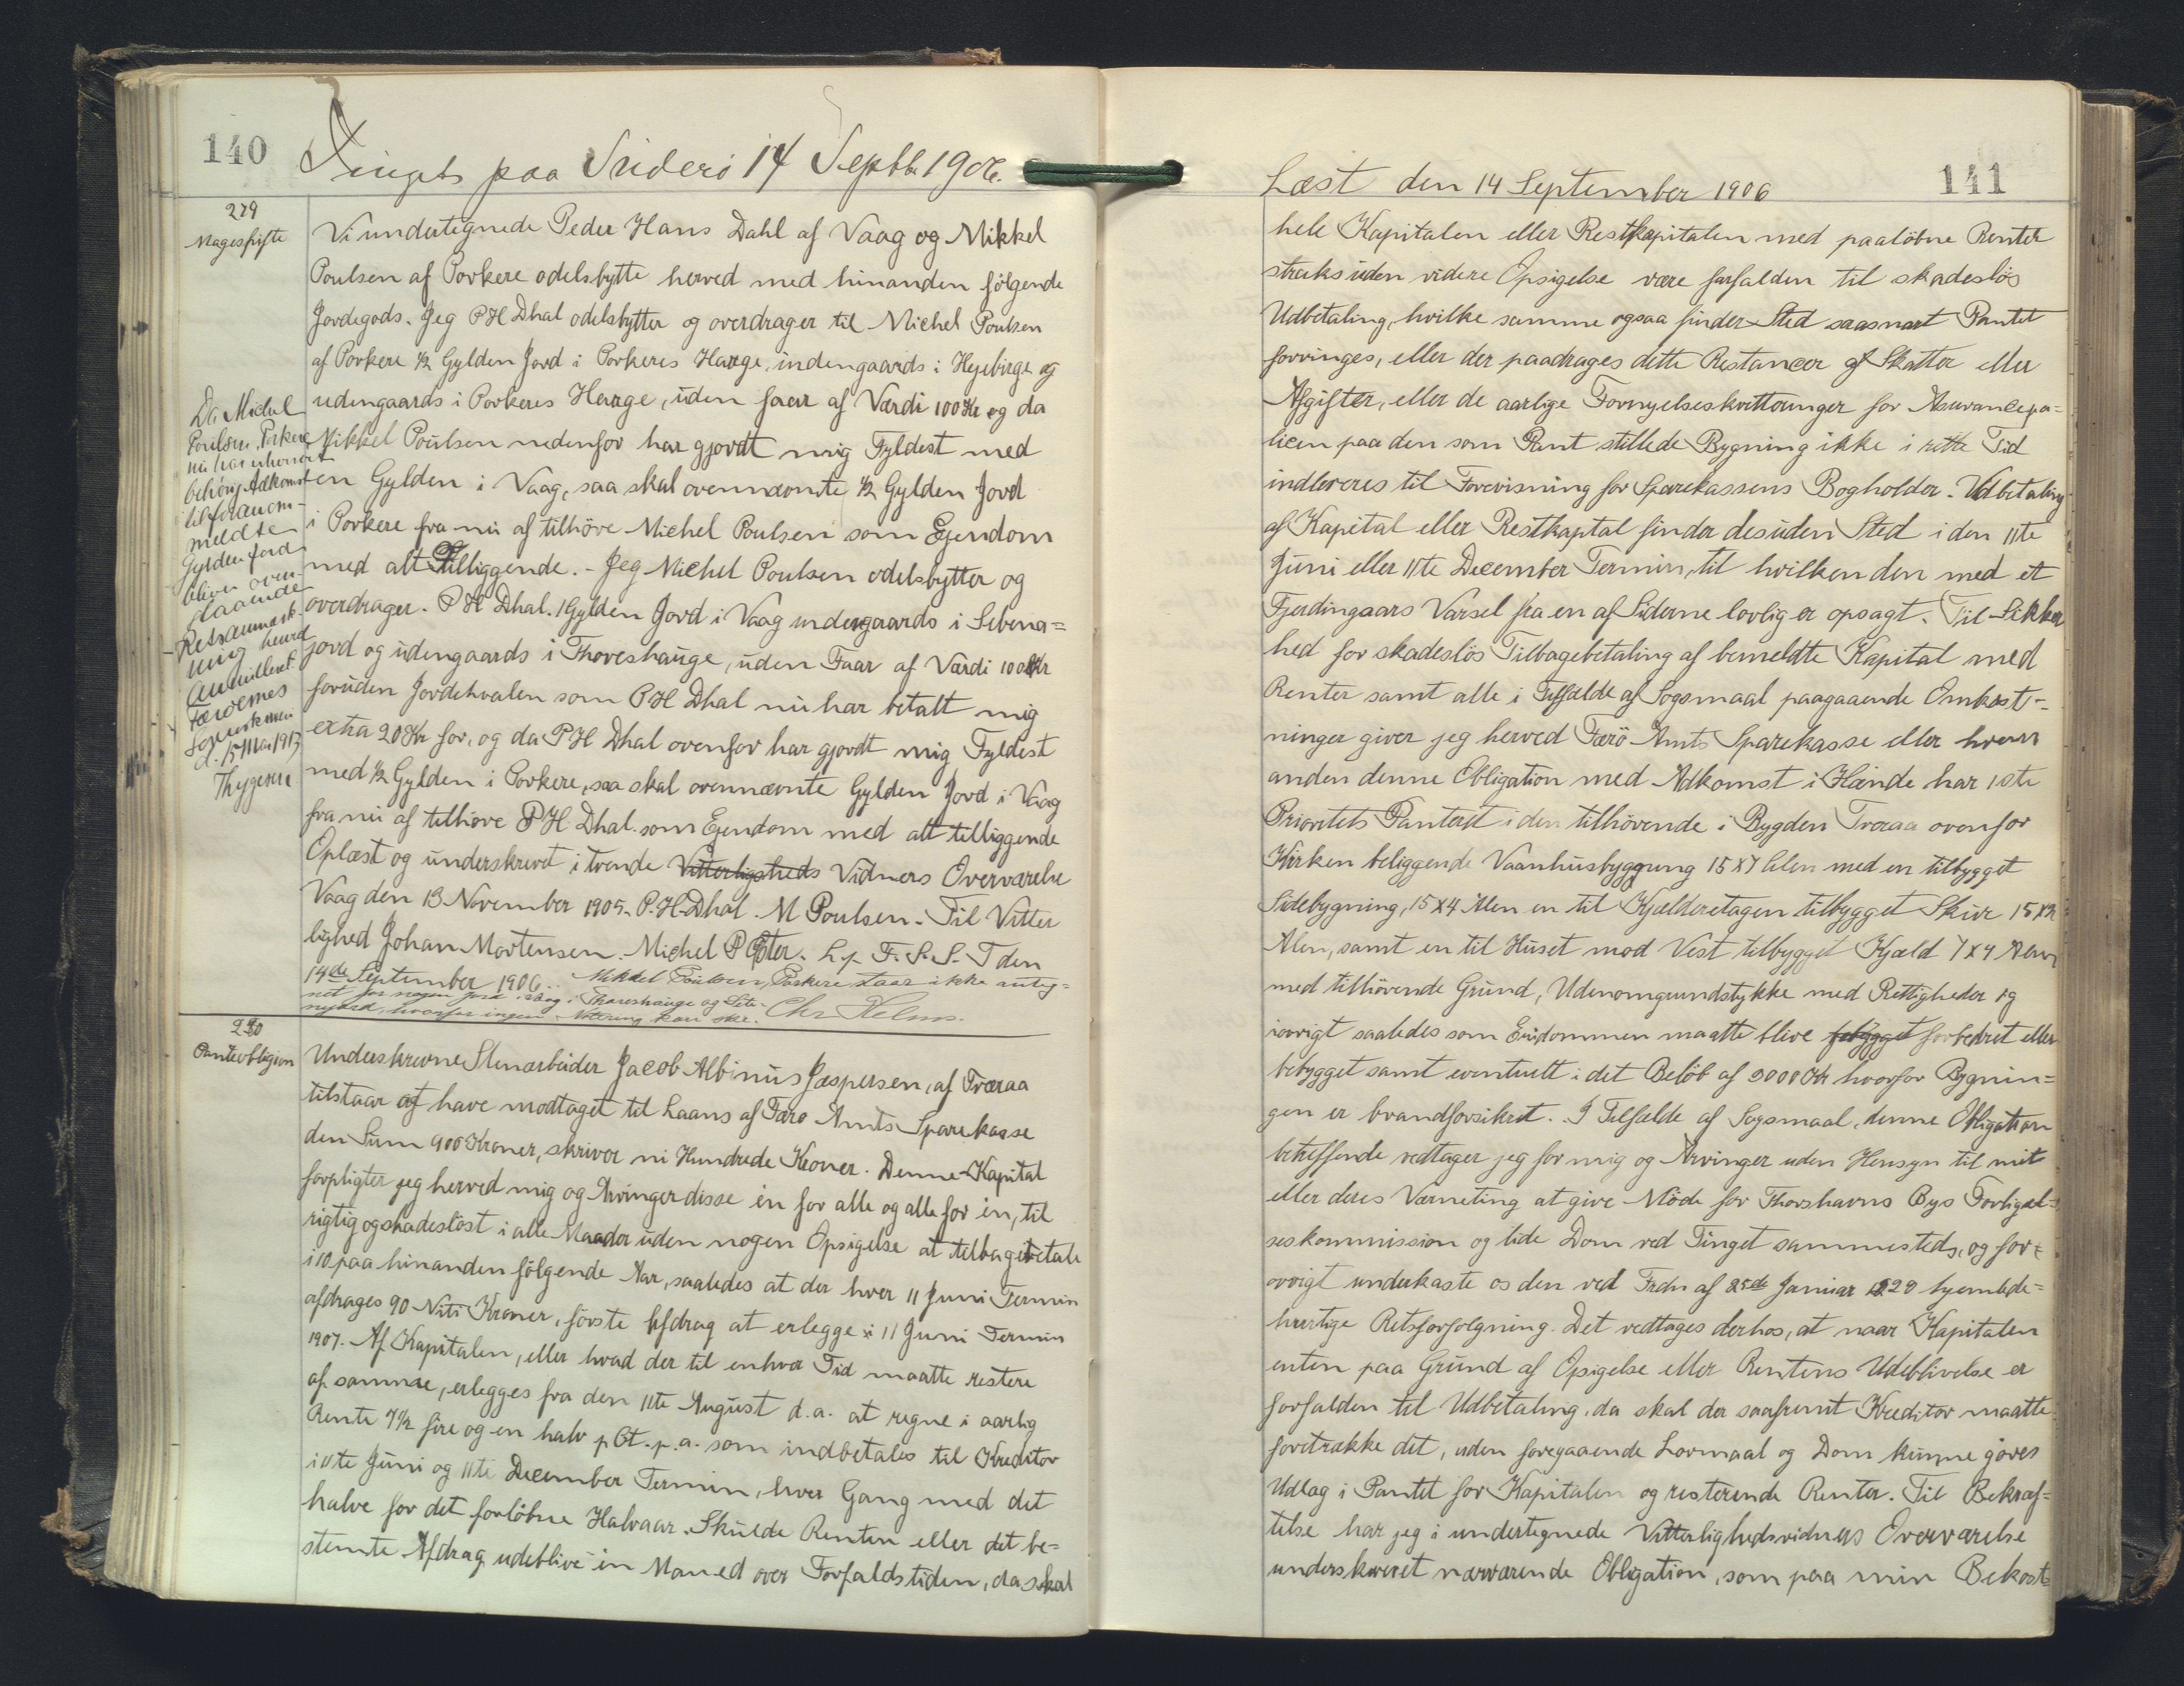 140
Tinget paa Suderö 14 Septbr 1906.
229
Mageskifte
Vi undertegnede Peder Hans Dahl af Vaag og Mikkel
Poulsen af Porkere odelsbytte herved med hinanden følgende
Jordegods. Jeg P H Dhal odelsbytter og overdrager til Michel Poulsen
af Porkere 1/2 Gylden Jord i Porkeres Hauge, indengaards i Hejebirge og
udengaards i Porkeres Hauge, uden faar af Værdi 100 Kr og da
Mikkel Poulsen nedenfor har gjordt mig Fyldest med
en Gylden i Vaag, saa skal ovennævnte 1/2 Gylden Jord
i Porkere fra nu af tilhöre Michel Poulsen som Ejendom
med alt Tilliggende. - Jeg Michel Poulsen odelsbytter og
overdrager. P H Dhal. 1 Gylden Jord i Vaag indengaards i Sebena=
jord og udengaards i Thoreshauge, uden Faar af Værdi 100 Kr
foruden Jordehvalen som P H Dhal nu har betalt mig
extra 20 Kr for, og da P H Dhal ovenfor har gjordt mig Fyldest
med 1/2 Gylden i Porkere, saa skal ovennævnte Gylden Jord i Vaag
fra nu af tilhöre P H Dhal som Ejendom med alt tilliggende
Oplæst og underskrevet i tvende Vitterligheds Vidners Overværelse
Vaag den 13 November 1905. P. H. Dhal. M Poulsen. Til Vitter
lighed Johan Mortensen. Michel P Öster. L. p. F. S. S. T den
14de September 1906. Mikkel Poulsen, Porkere staar ikke anteg=
net for nogen Jord i Vaag i Thoreshauge og Sete-
njord, hvorfor ingen Notering kan ske. Chr Helms.
Da Michel
Poulsen, Porkere
nu har erhvervet
behörig Adkomst
til foranom-
meldte
Gylden Jord
bliver oven-
staaende
Retsanmærk-
ning herved
annulleret.
Færöernes
Sorenskriveri
d. 15 Mai 1913
Thygesen
230
Panteobligion
Underskrevne Stenarbeider Jacob Albinus Jæspersen, af Tværaa
tilstaar at have modtaget til Laans af Færö Amts Sparekasse
den Sum 900 Kroner, skriver ni Hundrede Kroner. Denne Kapital
forpligter jeg herved mig og Arvinger disse én for alle og alle for én, til
rigtig og skadeslöst i alle Maader uden nogen Opsigelse at tilbagebetale
i 10 paa hinanden fölgende Aar, saaledes at der hver 11 Juni Termin
afdrages 90 Niti Kroner, förste Afdrag at erlegge i 11 Juni Termin
1907. Af Kapitalen, eller hvad der til enhver Tid maatte restere
af samme, erlegges fra den 11te August d.a. at regne i aarlig
Rente 4 1/2 fire og en halv p Ct. p. a. som indbetales til Kreditor
i 11te Juni og 11te December Termin, hver Gang med det
halve for det forlöbne Halvaar. Skulde Renten eller det be=
stemte Afdrag udeblive en Maaned over Forfaldstiden, da skal
Læst den 14 September 1906
141
hele Kapitalen eller Restkapitalen med paalöbne Renter
straks uden videre Opsigelse være forfalden til skadeslös
Udbetaling, hvilke samme ogsaa finder Sted saasnart Pantet
forringes, eller der paadrages dette Restancer af Skatter eller
Afgifter, eller de aarlige Fornyelseskvitteringer for Assurancepo=
licen paa den som Pant stillede Bygning ikke i rette Tid
indleveres til Forevisning for Sparekassens Bogholder. Udbetaling
af Kapital eller Restkapital finder desuden Sted i den 11te
Juni eller 11te December Termin, til hvilken den med et
Fjerdingaars Varsel fra en af Siderne lovlig er opsagt. Til Sikker
hed for skadeslös Tilbagebetaling af bemeldte Kapital med
Renter samt alle i Tilfælde af Sögsmaal paagaaende Omkost-
ninger giver jeg herved Færö Amts Sparekasse eller hvem
anden denne Obligation med Adkomst i Hænde har 1ste
Prioritets Panteret i den tilhörende i Bygden Tværaa ovenfor
Kirken beliggende Vaanhusbyggning 15 x 7 Alen med en tilbygget
Sidebygning, 15 x 4 Alen en til Kjælderetagen tilbygget Skur 15 x 2
Alen, samt en til Huset mod Vest tilbygget Kjæld 7 x 4 Alen
med tilhörende Grund, Udenomgrundstykke med Rettigheder og
iövrigt saaledes som Eiendommen maatte blive febygget forbedret eller
bebygget samt eventuelt i det Belöb af 2000 Kr hvorfor Bygnin=
gen er brandforsikret. I Tilfælde af Sogsmaal, denne Obligation
betreffende vedtager jeg for mig og Arvinger uden Hensyn til mit
eller deres Værneting at give Möde for Thorshavns Bys Forligel-
seskommission og lide Dom ved Tinget sammesteds, og for-
övrigt underkaste os den ved Frdn af 25de Januar 1828 hjemlede=
hurtige Retsforfolgning. Det vedtages derhos, at naar Kapitalen
enten paa Grund af Opsigelse eller Rentens Udeblivelse er
forfalden til Udbetaling, da skal der saafremt Kreditor maatte
foretrække det, uden foregaaende Lovmaal og Dom kunne göres
Udlæg i Pantet for Kapitalen og resterende Renter. Til Bekræf-
telse har jeg i undertegnede Vitterlighedsvidners Overværelse
underskrevet nærværende Obligation, som paa min Bekost-